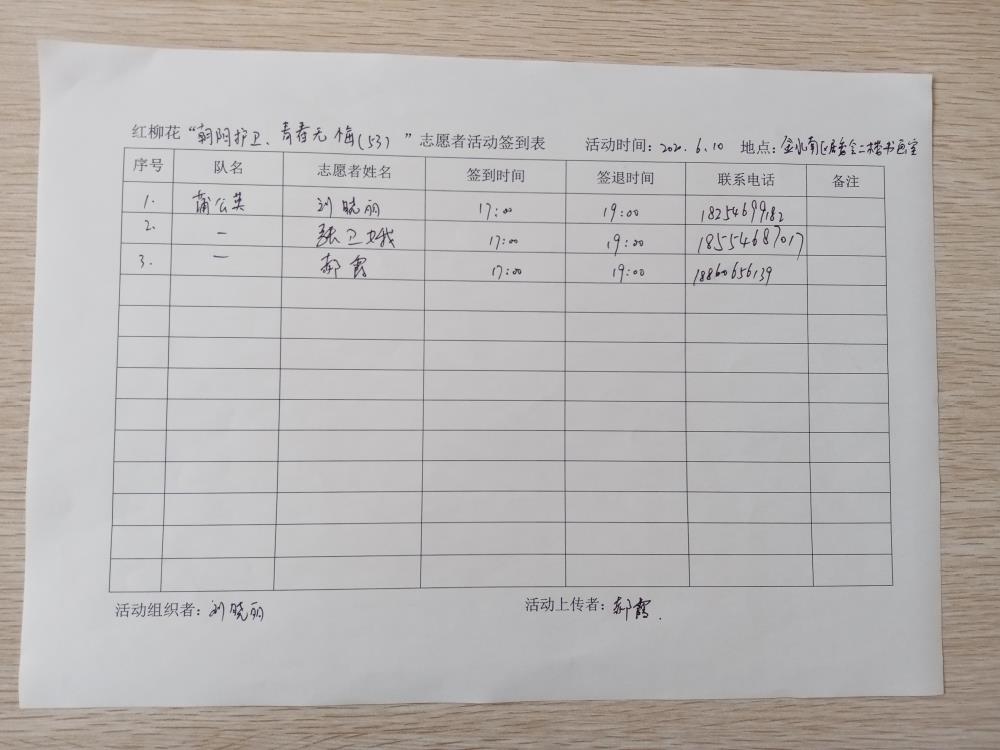 红柳花“朝阳护卫、青春无悔(53)”志愿者活动签到表 活动时间：2020.6.10 地点：金水南区居委会二楼书画室
序号 队名 志愿者姓名 签到时间 签退时间 联系电话 备注
1. 蒲公英 刘晓丽 17:00 19:00 18254699182
2. — 张卫娥 17:00 19:00 18554687017
3. — 郝霞 17:00 19:00 18860656139
活动组织者：刘晓丽 活动上传者：郝霞.